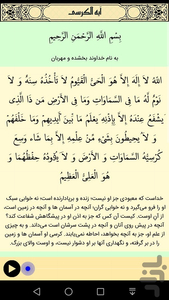 آیة الکرسی
بِسْمِ اللَّهِ الرَّحْمَنِ الرَّحِيمِ
به نام خداوند بخشنده و مهربان
اللَّهُ لاَ إِلَهَ إِلاَّ هُوَ الْحَيُّ الْقَيُّومُ لاَ تَأْخُذُهُ سِنَةٌ وَ لاَ
نَوْمٌ لَهُ مَا فِي السَّمَاوَاتِ وَمَا فِي الأَرْضِ مَن ذَا الَّذِي
يَشْفَعُ عِنْدَهُ إِلاَّ بِإِذْنِهِ يَعْلَمُ مَا بَيْنَ أَيْدِيهِمْ وَمَا خَلْفَهُمْ
وَ لاَ يُحِيطُونَ بِشَيْءٍ مِنْ عِلْمِهِ إِلاَّ بِمَا شَاءَ وَسِعَ
كُرْسِيُّهُ السَّمَاوَاتِ وَ الأَرْضَ وَ لاَ يَئُودُهُ حِفْظُهُمَا وَ
هُوَ الْعَلِيُّ الْعَظِيمُ
خداست که معبودی جز او نیست؛ زنده و برپادارنده است؛ نه خوابی سبک
او را فرو می‌گیرد و نه خوابی گران؛ آنچه در آسمان ها و آنچه در زمین است،
از آن اوست. کیست آن کس که جز به اذن او در پیشگاهش شفاعت کند؟
آنچه در پیش روی آنان و آنچه در پشت سرشان است می‌داند. و به چیزی
از علم او، جز به آنچه بخواهد، احاطه نمی‌یابند. کرسی او آسمان ها و زمین
را در بر گرفته، و نگهداری آنها بر او دشوار نیست، و اوست والای بزرگ.
بازار